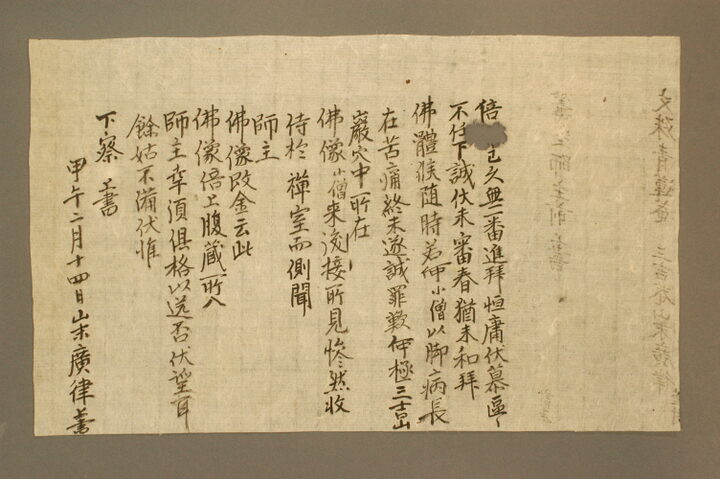 倍已久無一番進拜恒庸伏慕區〻
不任下誠伏未審春猶未和拜
佛體候随時若何小僧以脚病長
在苦痛終未遂誠罪歎何極三吉山
巖穴中所在
佛像小僧来後接所見惨然收
侍於 禪室而側聞
師主
佛像改金云此
佛像倍上腹藏所入
師主幸須俱格以送否伏望耳
餘姑不備伏惟
下察 上書
甲午二月十四日山末廣律